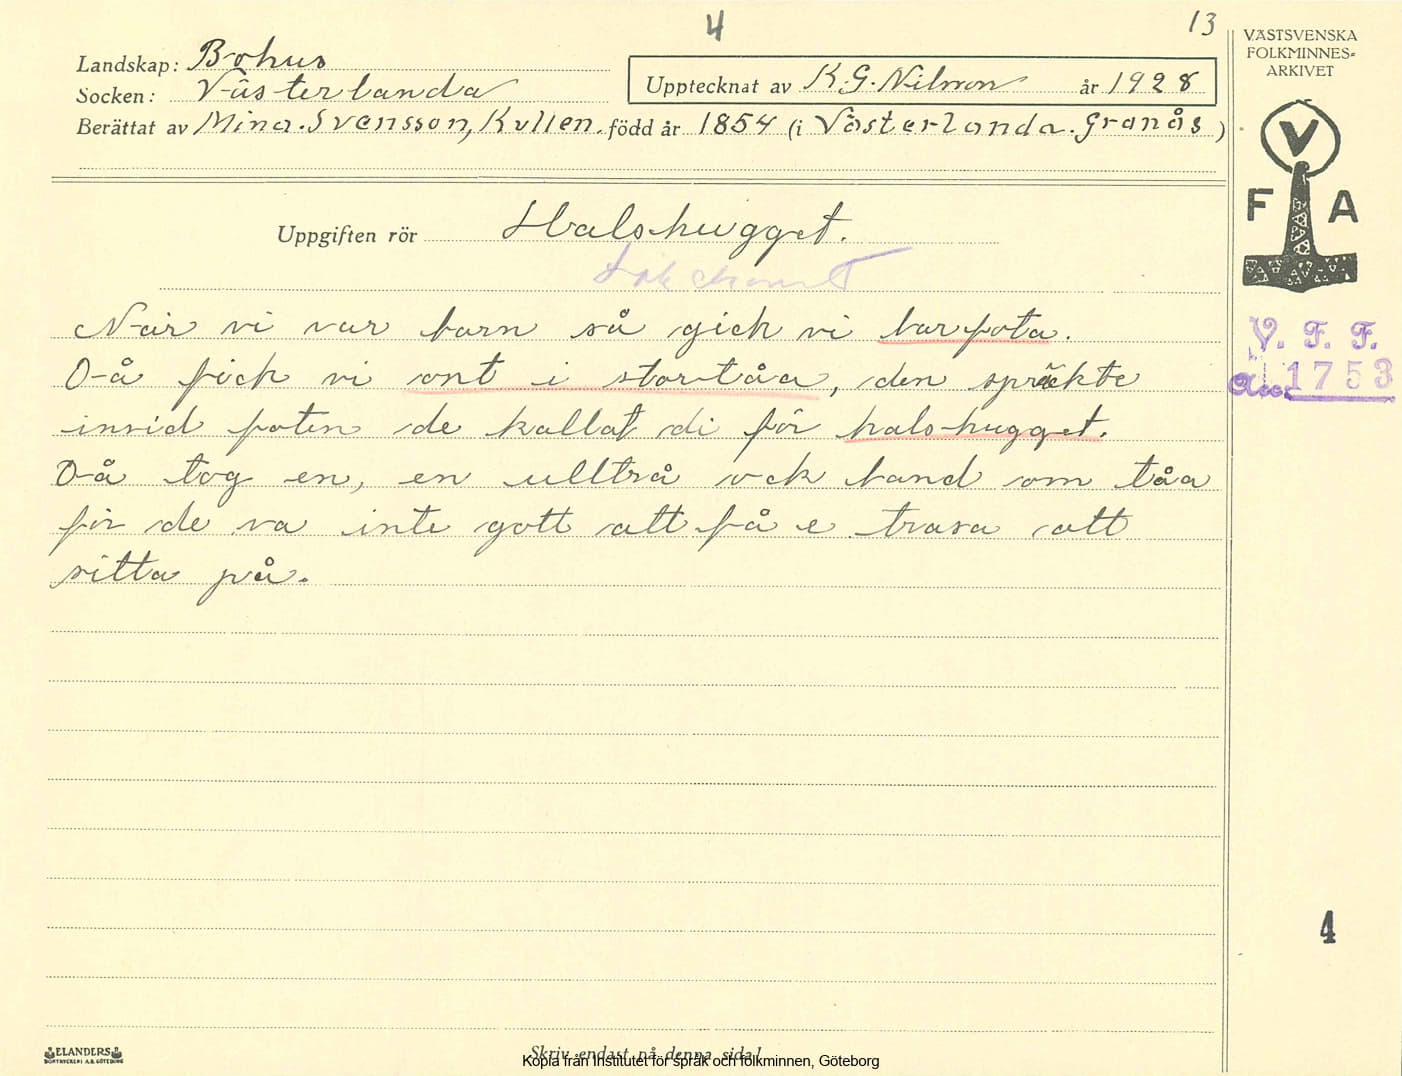 4
13
VÄSTSVENSKA
FOLKMINNES-
ARKIVET
Landskap: Bohus
Socken: Västerlanda
Upptecknat av K.G. Nilsson år 1928
Berättat av Mina Svensson, Kullen. född år 1854 (i Västerlanda. Granås)
V
F A
Uppgiften rör Halshugget.
När vi var barn så gick vi barfota.
Då feck vi ont i stortåa, den spräckte
insid foten de kallat di för halshugget.
Då tog en, en ulltrå ock band om tåa
för de va inte gott att få e trasa att
sitta på.
V. F. F.
Acc. 1753
4
ELANDERS
BOKTRYCKERI A.B. GÖTEBORG
Skriv endast på denna sida!
Kopia från Institutet för språk och folkminnen, Göteborg